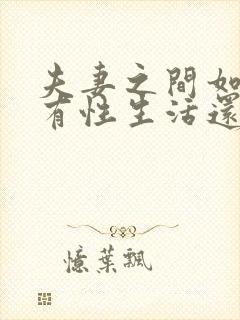 夫妻之間如
有性生活還
憶葉飄